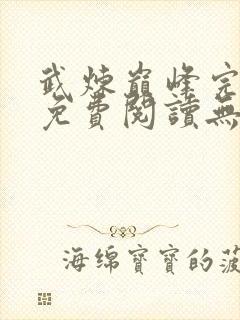 武炼巅峰完
免費閱讀無
海绵寶寶的菠